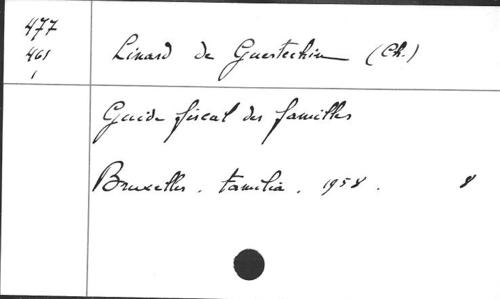 477
461
1
Linard de Guertechin (Ch.)
Guide fiscal des familles
Bruxelles. Familia. 1958. 8